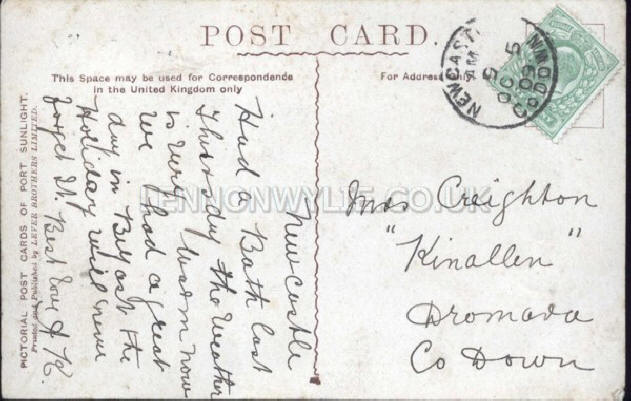 POST CARD.
This Space may be used for Correspondence
in the United Kingdom only
For Address Only
NEWCASTLE
CO DOWN
OC 5
09
LENNONWYLIE.CO.UK
Newcastle
Had a Bath last
Thursday the weather
is very warm now
We had a great
day in Belfast the
Holiday will never
forget it. Best love J K.
Creighton
"Kinallen"
Dromara
Co Down
PICTORIAL POST CARDS OF PORT SUNLIGHT.
Printed and Published by LEVER BROTHERS LIMITED.